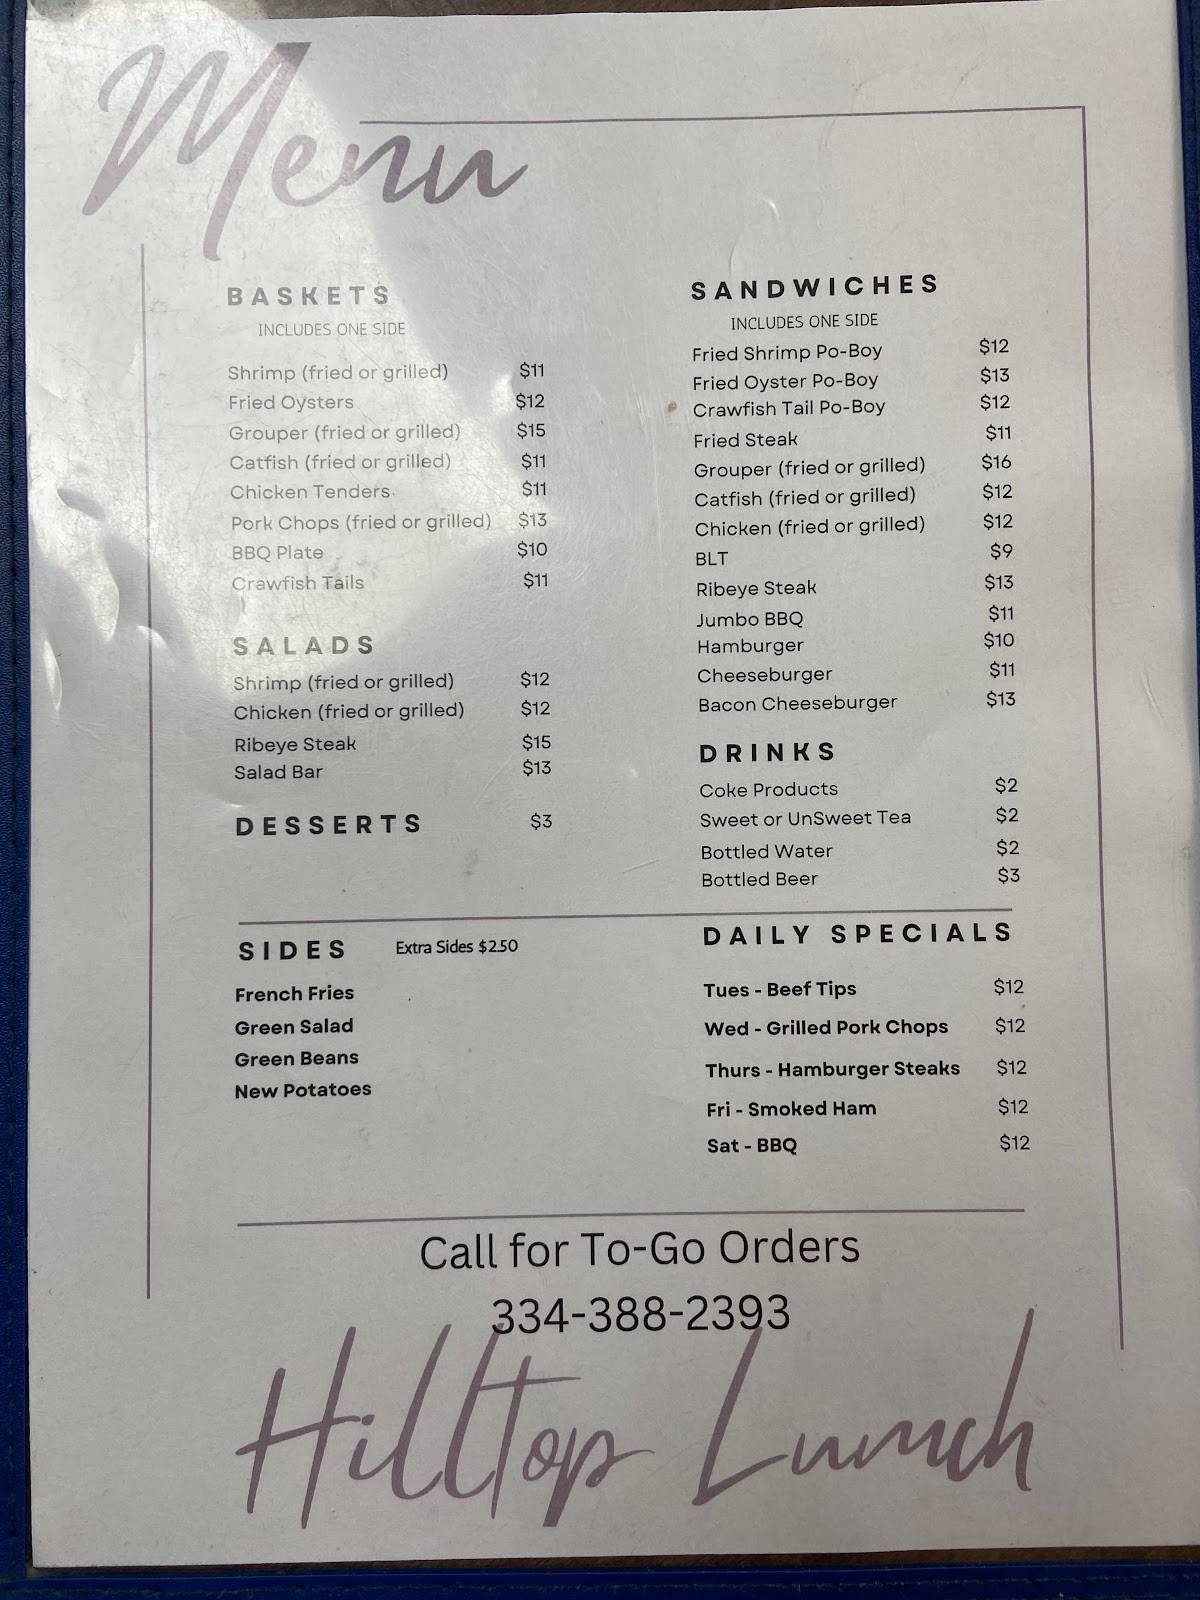 Menu
BASKETS
INCLUDES ONE SIDE
Shrimp (fried or grilled) $11
Fried Oysters $12
Grouper (fried or grilled) $15
Catfish (fried or grilled) $11
Chicken Tenders $11
Pork Chops (fried or grilled) $13
BBQ Plate $10
Crawfish Tails $11
SALADS
Shrimp (fried or grilled) $12
Chicken (fried or grilled) $12
Ribeye Steak $15
Salad Bar $13
DESSERTS $3
SANDWICHES
INCLUDES ONE SIDE
Fried Shrimp Po-Boy $12
Fried Oyster Po-Boy $13
Crawfish Tail Po-Boy $12
Fried Steak $11
Grouper (fried or grilled) $16
Catfish (fried or grilled) $12
Chicken (fried or grilled) $12
BLT $9
Ribeye Steak $13
Jumbo BBQ $11
Hamburger $10
Cheeseburger $11
Bacon Cheeseburger $13
DRINKS
Coke Products $2
Sweet or UnSweet Tea $2
Bottled Water $2
Bottled Beer $3
SIDES Extra Sides $2.50
French Fries
Green Salad
Green Beans
New Potatoes
DAILY SPECIALS
Tues - Beef Tips $12
Wed - Grilled Pork Chops $12
Thurs - Hamburger Steaks $12
Fri - Smoked Ham $12
Sat - BBQ $12
Call for To-Go Orders
334-388-2393
Hilltop Lunch